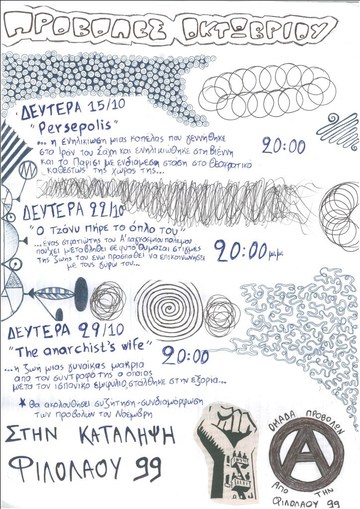 ΠΡΟΒΟΛΕΣ ΟΚΤΩΒΡΙΟΥ
ΔΕΥΤΕΡΑ 15/10
"Persepolis"
... η ενηλικίωση μιας κοπέλας που γεννήθηκε
στο Ιράν του Σάχη και ενηλικιώθηκε στη Βιέννη
και το Παρίσι με ενδιάμεση στάση στο θεοκρατικό
καθεστώς της χώρας της...
20:00
ΔΕΥΤΕΡΑ 22/10
"Ο Τζόνυ πήρε το όπλο του"
...ένας στρατιώτης του Α' παγκοσμίου πολέμου
που έχει μεταβληθεί σε φυτό θυμάται στιγμές
της ζωής του ενώ προσπαθεί να επικοινωνήσει
με τους γύρω του...
20:00 μ.μ.
ΔΕΥΤΕΡΑ 29/10
"The anarchist's wife"
20:00
... η ζωή μιας γυναίκας μακριά
από τον σύντροφό της ο οποίος
μετά τον ισπανικό εμφύλιο στάλθηκε στην εξορία...
★ Θα ακολουθήσει συζήτηση-συνδιαμόρφωση
των προβολών του Νοέμβρη
ΣΤΗΝ ΚΑΤΑΛΗΨΗ
ΦΙΛΟΛΑΟΥ 99
ΟΜΑΔΑ ΠΡΟΒΟΛΩΝ
ΑΠΟ ΤΗΝ
ΦΙΛΟΛΑΟΥ 99